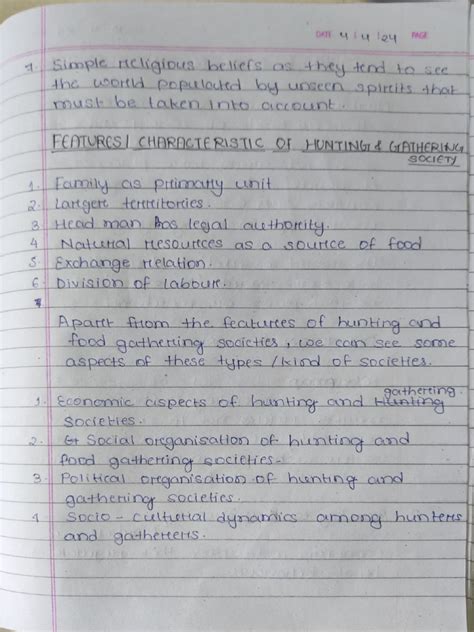 DATE 4 / 4 / 24 PAGE
7. Simple religious beliefs as they tend to see
the world populated by unseen spirits that
must be taken into account.
FEATURES / CHARACTERISTIC OF HUNTING & GATHERING
SOCIETY
1. Family as primary unit
2. Largert territories.
3. Head man has legal authority.
4 Natural resources as a source of food
5. Exchange relation.
6. Division of labour.
Apart from the features of hunting and
food gathering societies, we can see some
aspects of these types / kind of societies.
gathering
1. Economic aspects of hunting and Hunting
Societies.
2. Social organisation of hunting and
food gathering societies.
3. Political organisation of hunting and
gathering societies.
4 Socio - cultural dynamics among hunters
and gatherers.